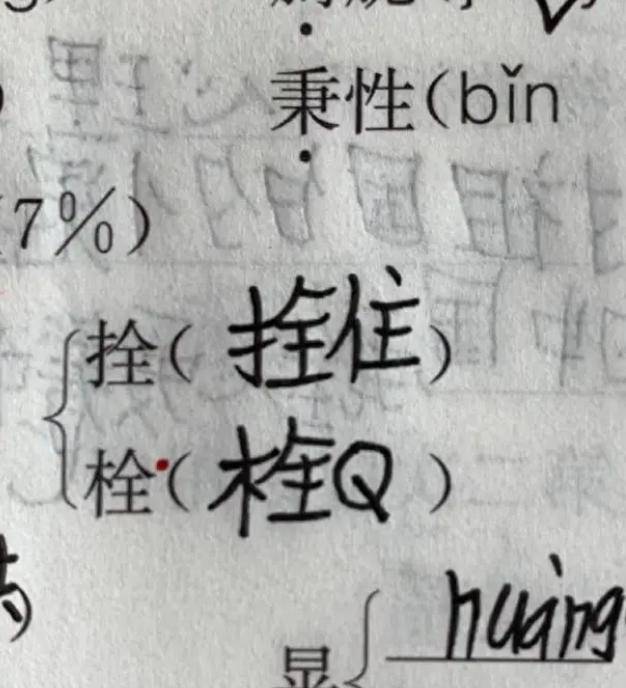 秉性(bǐn
7%)
拴(拴住)
栓(栓Q)
huàng
显